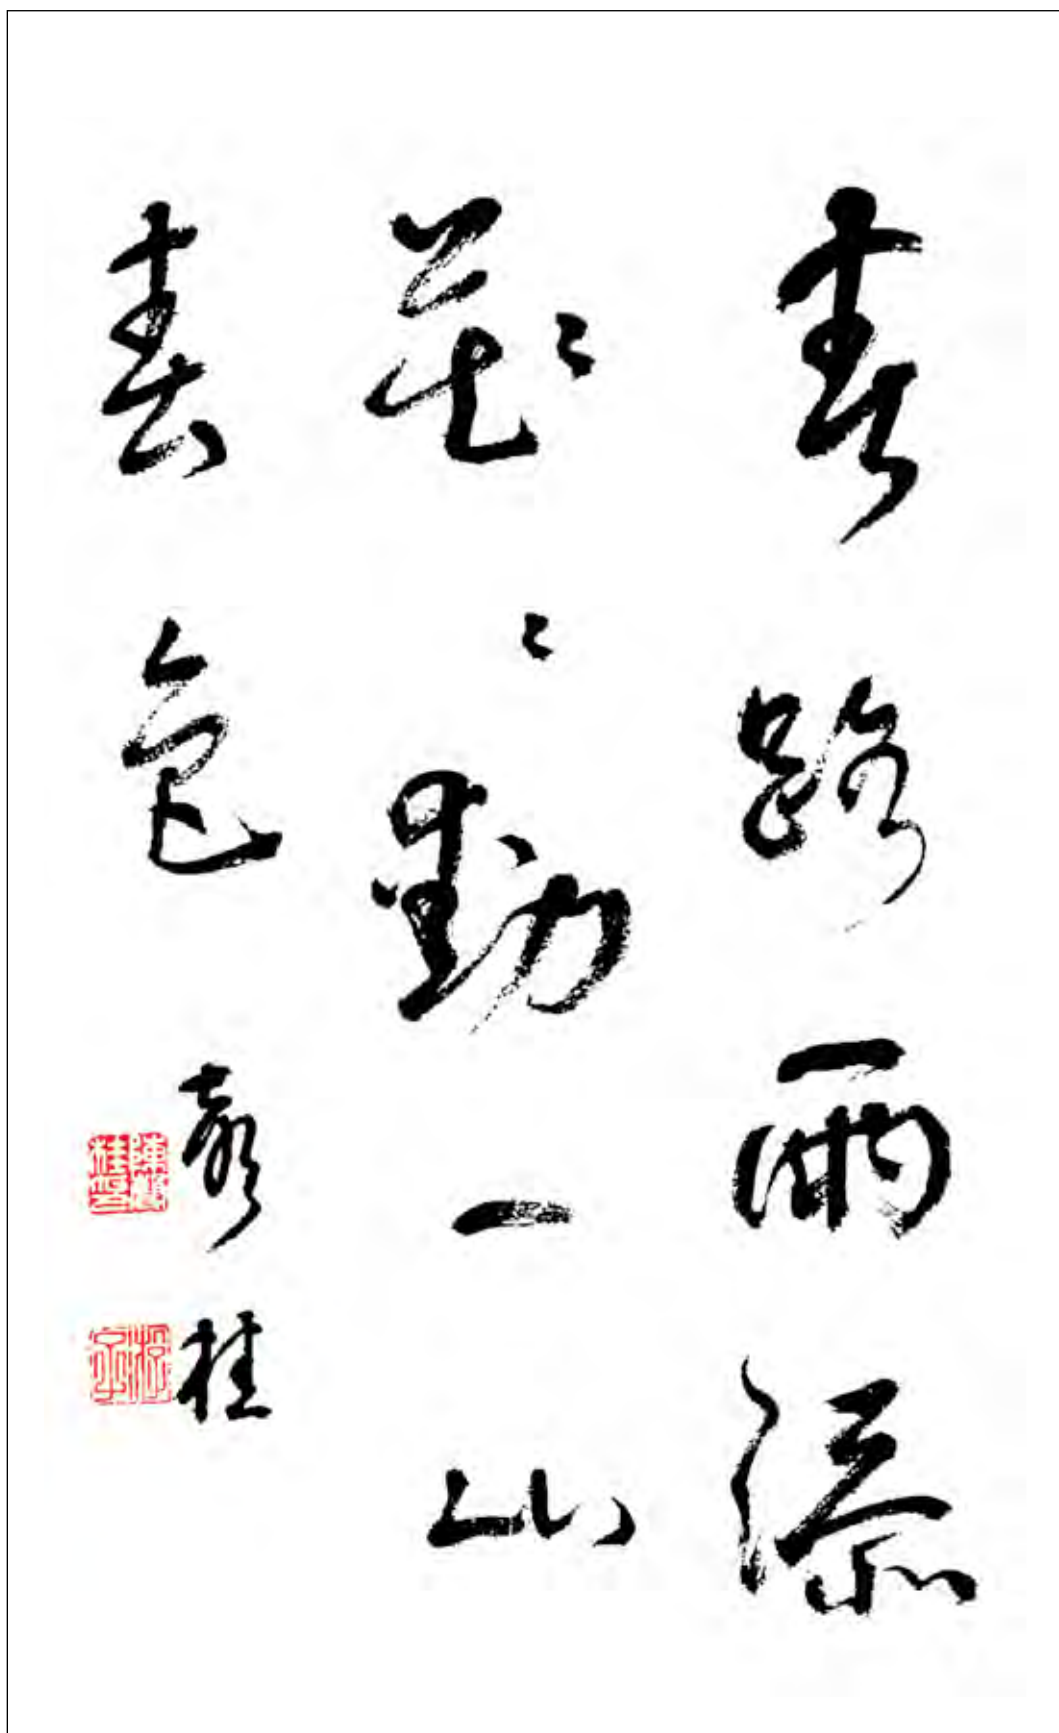 春路雨添
花〻動一山
春色
桂